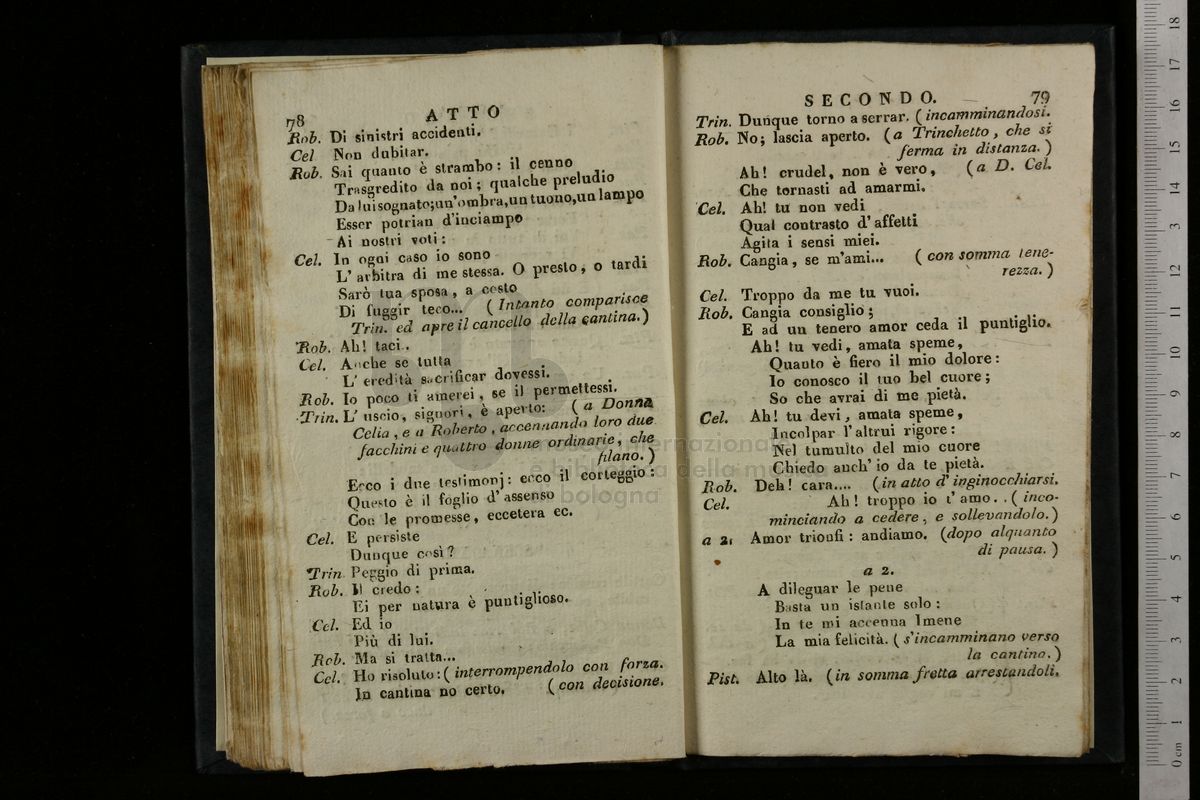 78
ATTO
Rob. Di sinistri accidenti.
Cel Non dubitar.
Rob. Sai quanto è strambo: il cenno
Trasgredito da noi; qualche preludio
Da lui sognato; un'ombra, un tuono, un lampo
Esser potrian d'inciampo
Ai nostri voti:
Cel. In ogni caso io sono
L' arbitra di me stessa. O presto, o tardi
Sarò tua sposa, a costo
Di fuggir teco... (Intanto comparisce
Trin. ed apre il cancello della cantina.)
Rob. Ah! taci.
Cel. Anche se tutta
L' eredità sacrificar dovessi.
Rob. Io poco ti amerei, se il permettessi.
Trin. L' uscio, signori, è aperto: (a Donna
Celia, e a Roberto, accennando loro due
facchini e quattro donne ordinarie, che
filano.)
Ecco i due testimonj: ecco il corteggio:
Questo è il foglio d' assenso
Con le promesse, eccetera ec.
Cel. E persiste
Dunque così?
Trin. Peggio di prima.
Rob. Il credo:
Ei per natura è puntiglioso.
Cel. Ed io
Più di lui.
Rob. Ma si tratta...
Cel. Ho risoluto: (interrompendolo con forza.
In cantina no certo. (con decisione.
SECONDO. 79
Trin. Dunque torno a serrar. (incamminandosi.
Rob. No; lascia aperto. (a Trinchetto, che si
ferma in distanza.)
Ah! crudel, non è vero, (a D. Cel.
Che tornasti ad amarmi.
Cel. Ah! tu non vedi
Qual contrasto d' affetti
Agita i sensi miei.
Rob. Cangia, se m'ami... (con somma tene-
rezza.)
Cel. Troppo da me tu vuoi.
Rob. Cangia consiglio;
E ad un tenero amor ceda il puntiglio.
Ah! tu vedi, amata speme,
Quanto è fiero il mio dolore:
Io conosco il tuo bel cuore;
So che avrai di me pietà.
Cel. Ah! tu devi, amata speme,
Incolpar l'altrui rigore:
Nel tumulto del mio cuore
Chiedo anch' io da te pietà.
Rob. Deh! cara.... (in atto d' inginocchiarsi.
Cel. Ah! troppo io t' amo.. (inco-
minciando a cedere, e sollevandolo.)
a 2. Amor trionfi: andiamo. (dopo alquanto
di pausa.)
a 2.
A dileguar le pene
Basta un istante solo:
In te mi accenna Imene
La mia felicità. (s'incamminano verso
la cantina.)
Pist. Alto là. (in somma fretta arrestandoli.
internazionale
e biblioteca della musica
bologna